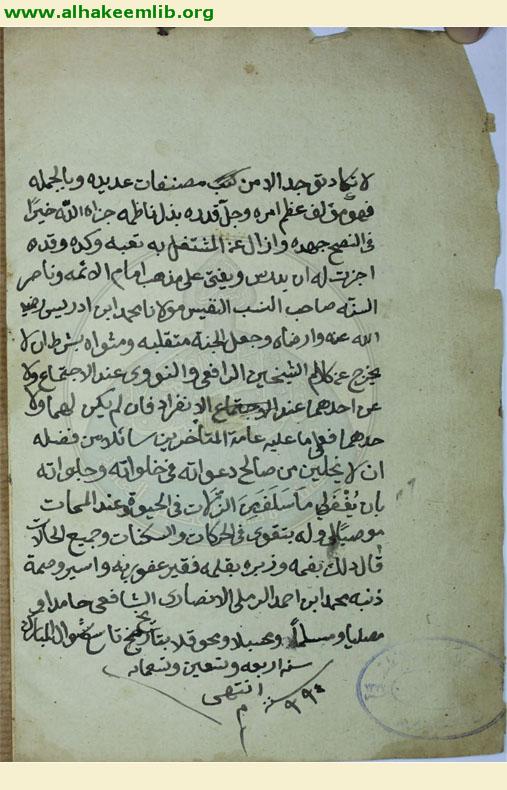 www.alhakeemlib.org
لا تكاد توجد الا من كتب مصنفات عديده وبالجمله
فهو مؤلف عظم امره وجل قدره بذل ناظمه جزاه الله خيرا
في النصح جهده وازال عن المشتغل به تعبه وكده وقده
اجزت له ان يدرس ويفتي على مذهب امام الائمه وناصر
السنه صاحب النسب النفيس مولانا محمد ابن ادريس رضي
الله عنه وارضاه وجعل الجنة متقلبه ومثواه بشرط ان لا
يخرج عن كلام الشيخين الرافعي والنووي عند الاجتماع ولا
عن احدهما عند الانفراد فان لم يكن لهما ولا
حدهما فعلى ما عليه عامة المتأخرين سائلا من فضله
ان لا يخلين من صالح دعواته في خلواته وجلواته
بان يُغفَر لي ما سَلَفَ مِنَ الزّلات في الحيوة وعند الممات
موصيًا لي وله بتقوى في الحركات والسكنات وجميع الحالات
قال ذلك بفمه وزبره بقلمه فقير عفو ربه واسير وصمة
ذنبه محمد ابن احمد الرملي الانصاري الشافعي حامدا و
مصليا ومسلماً ومحسبلا ومحوقلا بتاريخ تاسع شوال المبارك
سنة اربعه وتسعين وتسعمائه
انتهى
سنة ٩٩٤
م